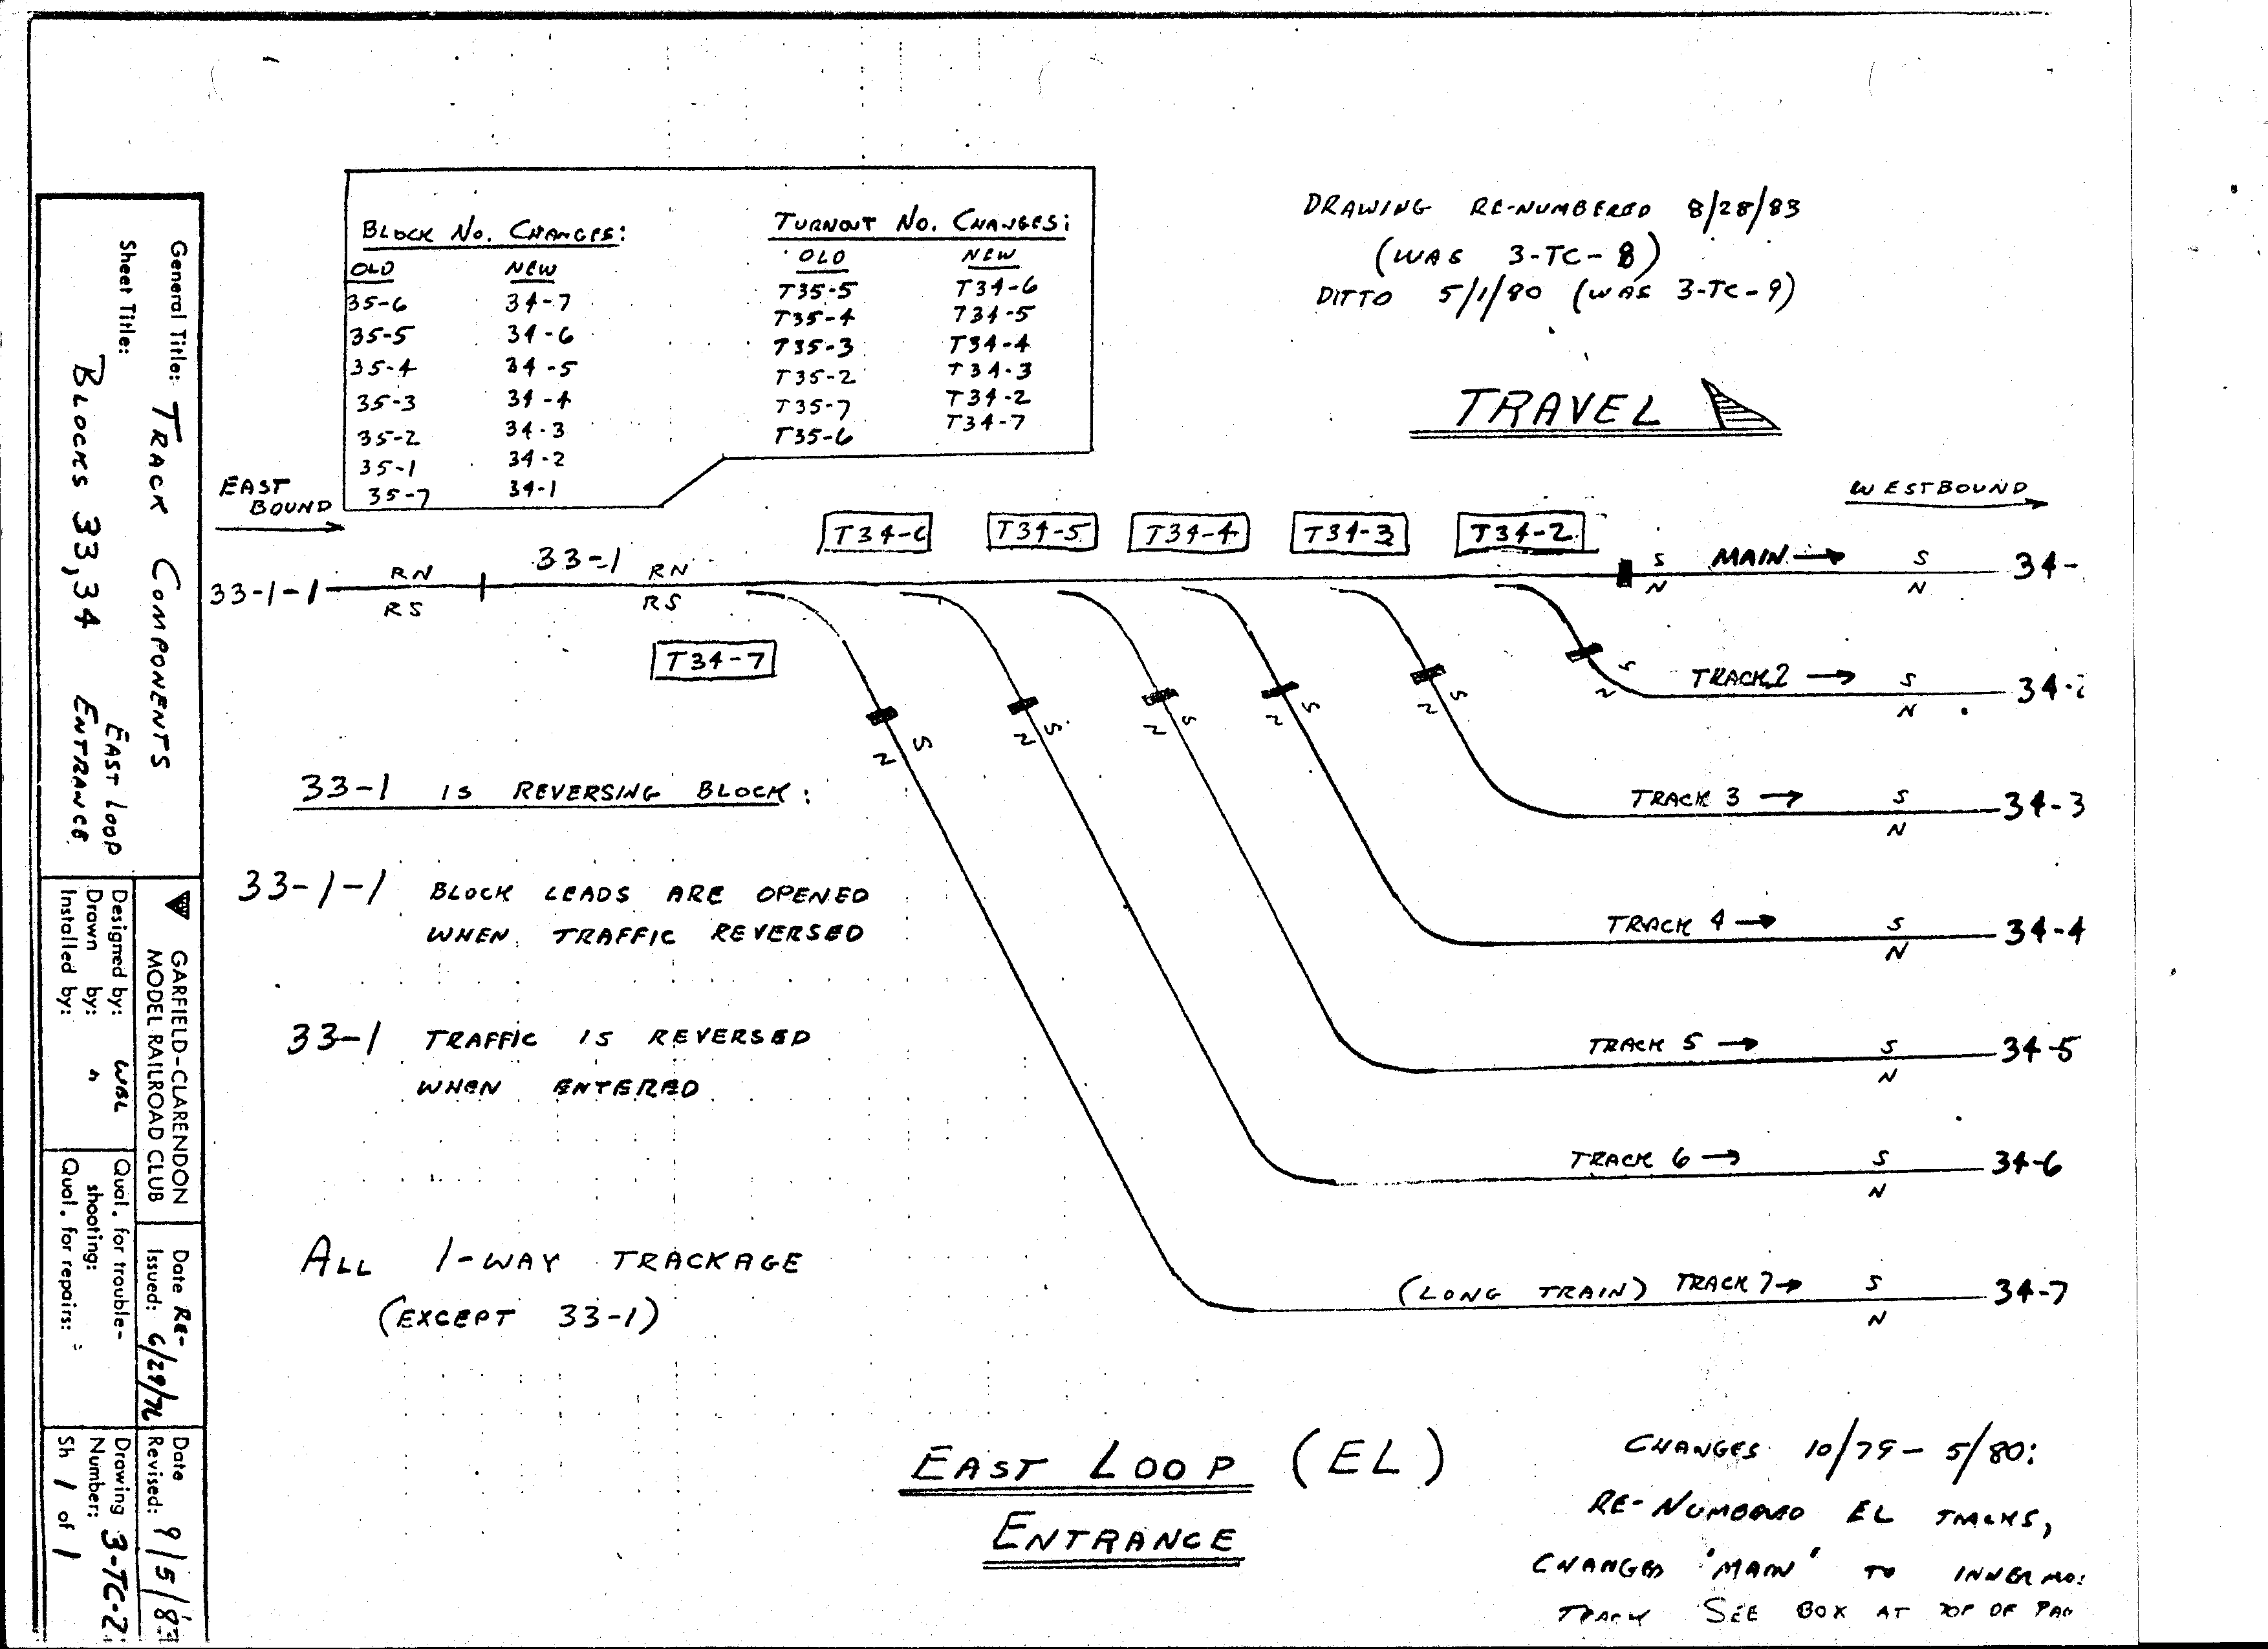 General Title: TRACK COMPONENTS
Sheet Title:
BLOCKS 33,34 EAST LOOP
ENTRANCE
GARFIELD-CLARENDON
MODEL RAILROAD CLUB
Designed by: WBL
Drawn by: "
Installed by:
Qual. for trouble-
shooting:
Qual. for repairs:
Date RE-
Issued: 6/29/76
Date
Revised: 9/5/83
Drawing
Number: 3-TC-2
Sh 1 of 1
BLOCK No. CHANGES:
OLD NEW
35-6 34-7
35-5 34-6
35-4 34-5
35-3 34-4
35-2 34-3
35-1 34-2
35-7 34-1
TURNOUT No. CHANGES:
OLD NEW
T35-5 T34-6
T35-4 T34-5
T35-3 T34-4
T35-2 T34-3
T35-7 T34-2
T35-6 T34-7
DRAWING RE-NUMBERED 8/28/83
(WAS 3-TC-8)
DITTO 5/1/80 (WAS 3-TC-9)
TRAVEL
EAST
BOUND
WESTBOUND
T34-6 T34-5 T34-4 T34-3 T34-2
33-1-1 RN 33-1 RN S MAIN → S 34-
RS RS N N
T34-7
S TRACK 2 → S 34-2
N N
S S S S S
N N N N N
33-1 IS REVERSING BLOCK:
TRACK 3 → S 34-3
N
33-1-1 BLOCK LEADS ARE OPENED
WHEN TRAFFIC REVERSED
TRACK 4 → S 34-4
N
33-1 TRAFFIC IS REVERSED
WHEN ENTERED
TRACK 5 → S 34-5
N
TRACK 6 → S 34-6
N
ALL 1-WAY TRACKAGE
(EXCEPT 33-1)
(LONG TRAIN) TRACK 7 → S 34-7
N
EAST LOOP (EL)
ENTRANCE
CHANGES 10/79 - 5/80:
RE-NUMBERED EL TRACKS,
CHANGED "MAIN" TO INNERMO
TRACK SEE BOX AT TOP OF PAG